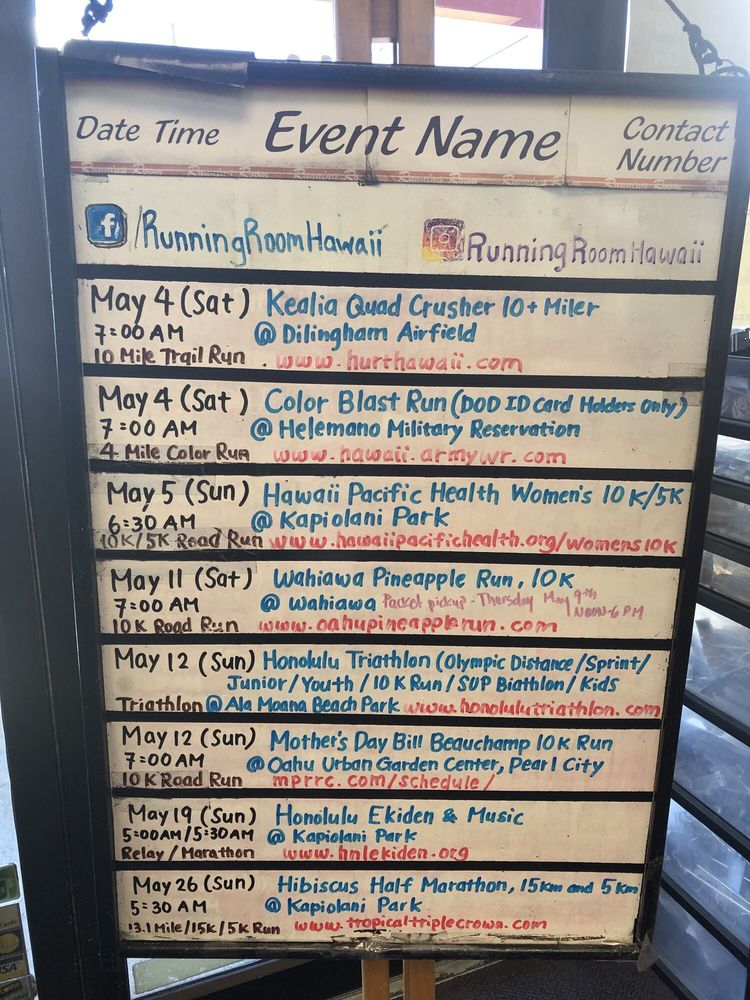 Date Time Event Name Contact Number
Running Room Running Room Running Room Running Room
/RunningRoomHawaii RunningRoomHawaii
May 4 (Sat) Kealia Quad Crusher 10+ Miler
7:00 AM @ Dilingham Airfield
10 Mile Trail Run . www.hurthawaii.com
May 4 (Sat) Color Blast Run (DOD ID Card Holders Only)
7:00 AM @ Helemano Military Reservation
4 Mile Color Run www.hawaii.armywr.com
May 5 (Sun) Hawaii Pacific Health Women's 10K/5K
6:30 AM @ Kapiolani Park
10K/5K Road Run www.hawaiipacifichealth.org/womens10k
May 11 (Sat) Wahiawa Pineapple Run, 10K
7:00 AM @ Wahiawa Packet pickup - Thursday May 9th NOON-6PM
10K Road Run www.oahupineapplerun.com
May 12 (Sun) Honolulu Triathlon (Olympic Distance/Sprint/
Junior/Youth/10K Run/SUP Biathlon/Kids
Triathlon @ Ala Moana Beach Park www.honolulutriathlon.com
May 12 (Sun) Mother's Day Bill Beauchamp 10K Run
7:00 AM @ Oahu Urban Garden Center, Pearl City
10K Road Run mprrc.com/schedule/
May 19 (Sun) Honolulu Ekiden & Music
5:00AM/5:30AM @ Kapiolani Park
Relay/Marathon www.hnlekiden.org
May 26 (Sun) Hibiscus Half Marathon, 15km and 5km
5:30 AM @ Kapiolani Park
13.1 Mile/15K/5K Run www.tropicaltriplecrown.com
VISA